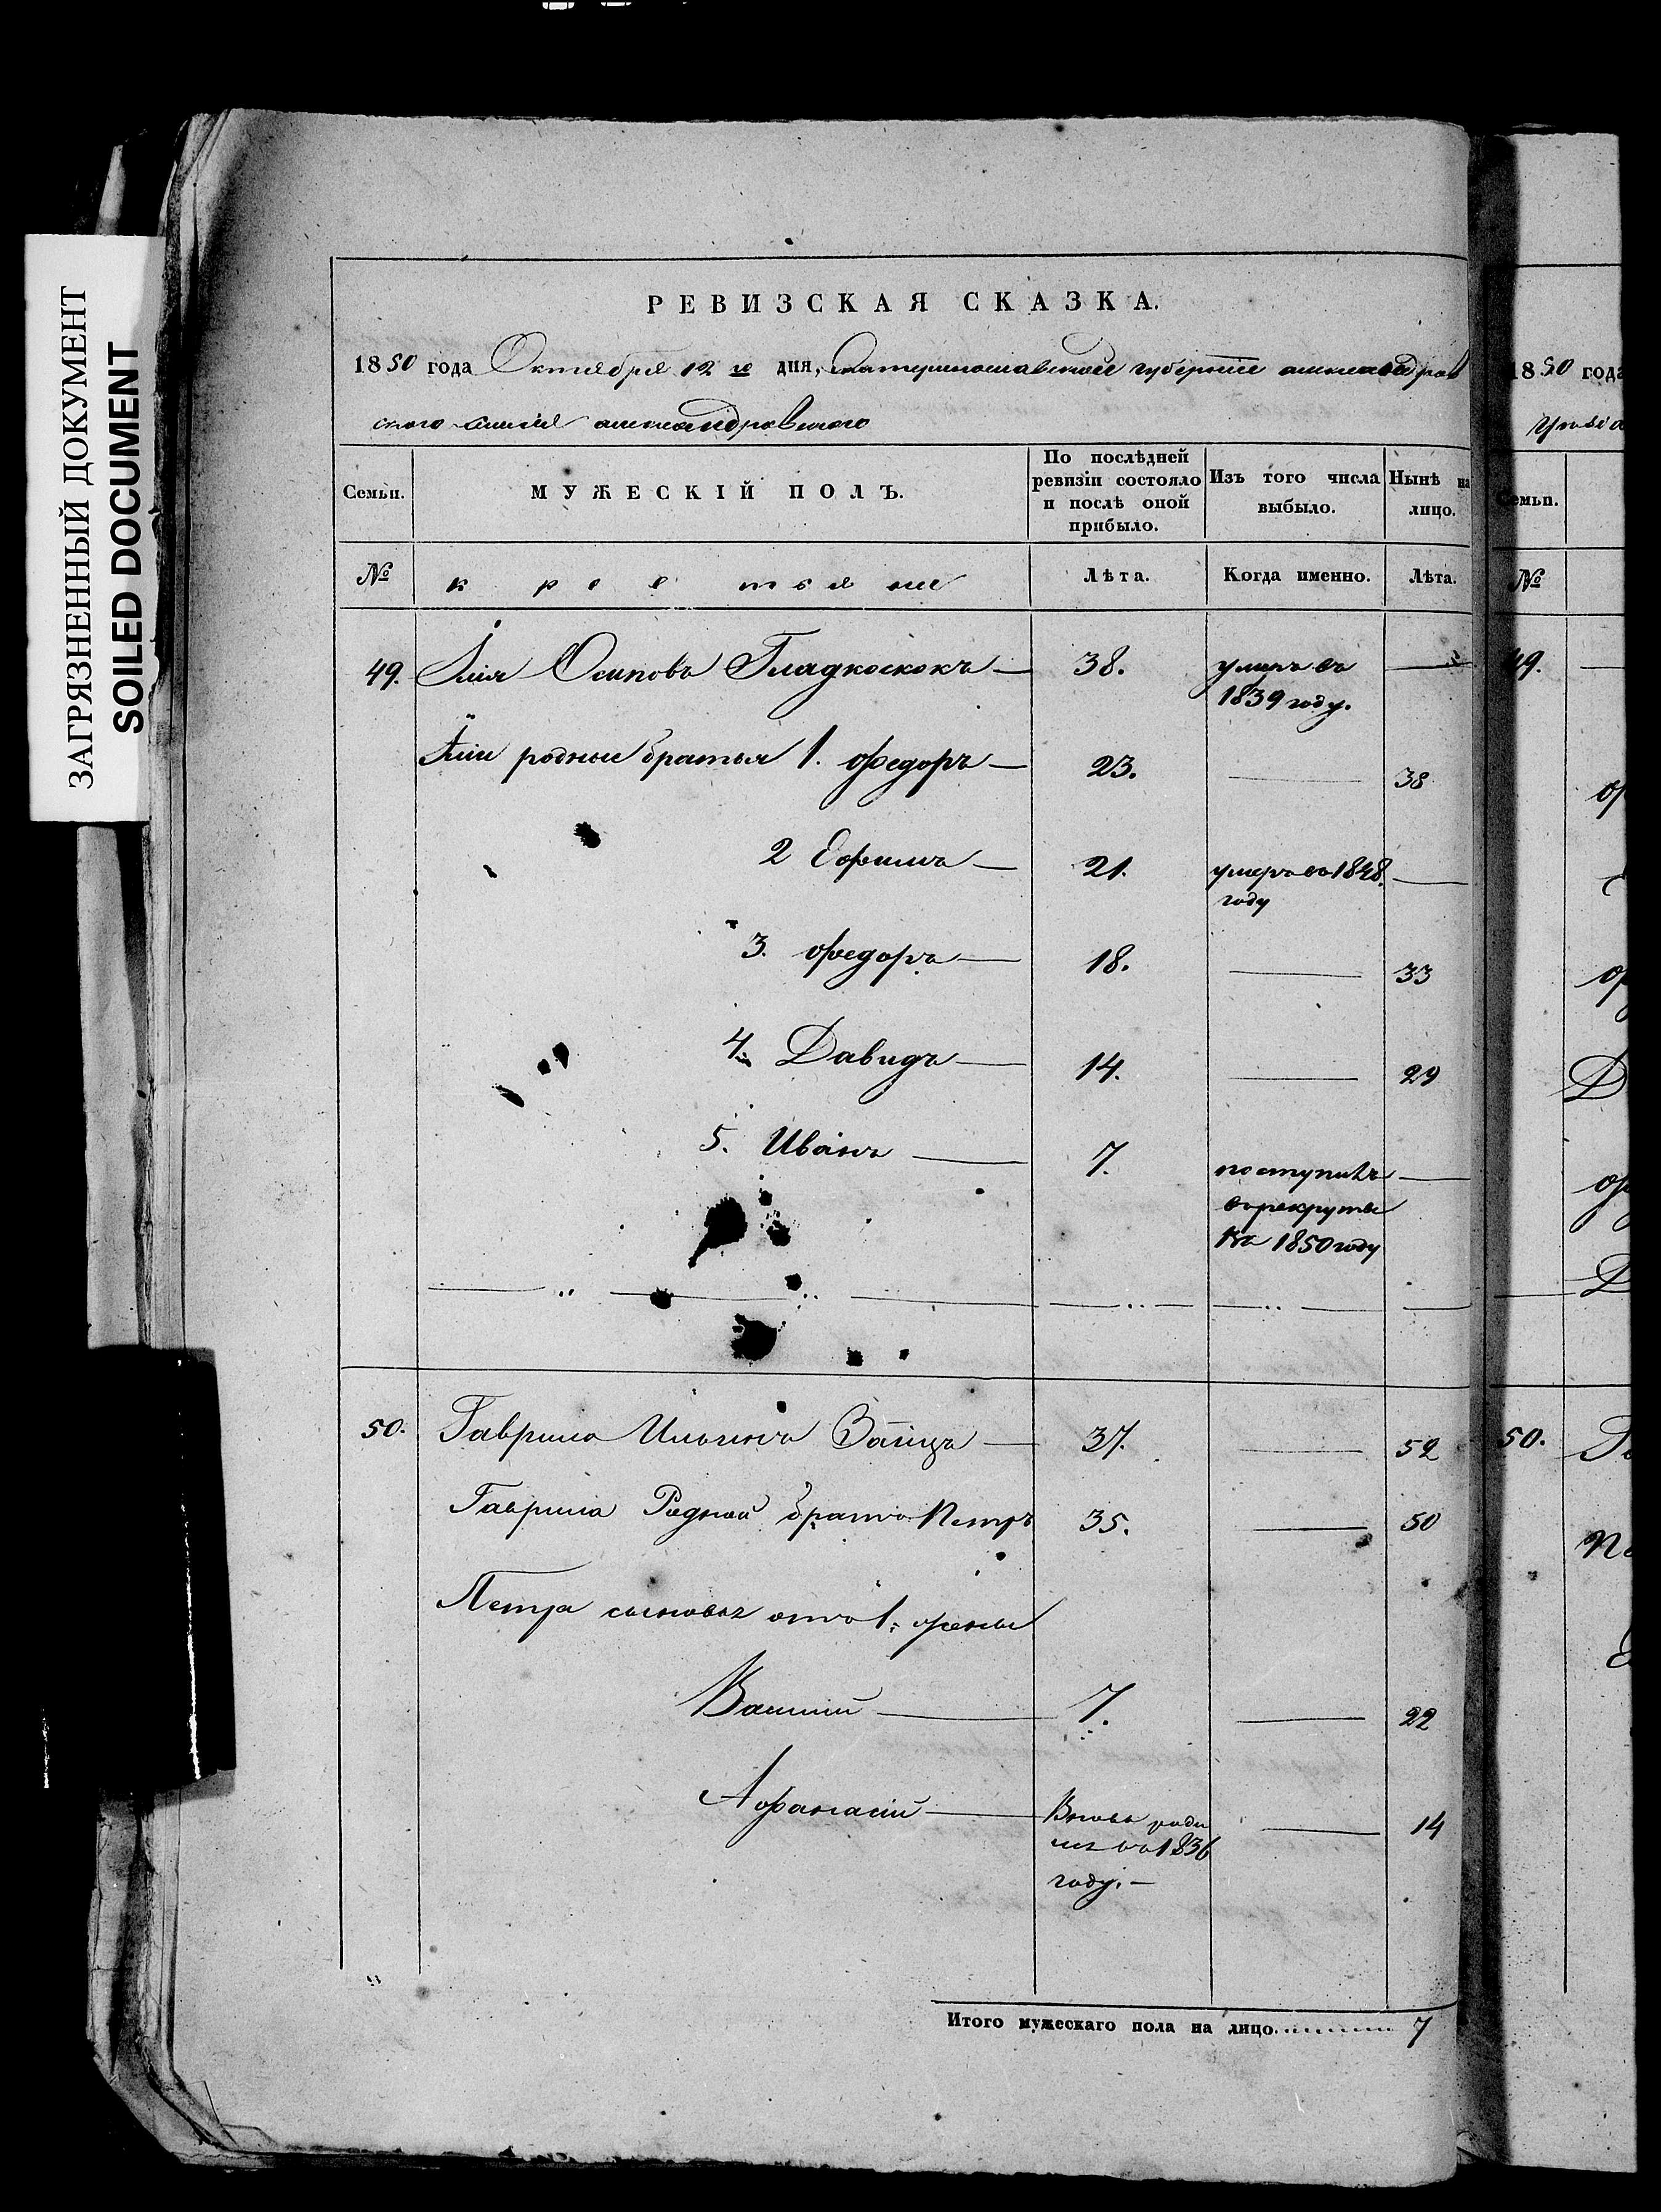 ЗАГРЯЗНЕННЫЙ ДОКУМЕНТ
SOILED DOCUMENT
РЕВИЗСКАЯ СКАЗКА.
1850 года Октября 12 го дня, Екатеринославской губернии александров
ского александровского
Семьи.
МУЖЕСКІЙ ПОЛЪ.
По послѣдней ревизіи состояло и послѣ оной прибыло.
Изъ того числа выбыло.
Нынѣ на лицо.
№
крестьяне
Лѣта.
Когда именно.
Лѣта.
49. Илія Осиповъ Гладкоскокъ — 38. умеръ въ —
1839 году.
Иліи родные братья 1. Федоръ — 23. — 38
2 Ефимъ — 21. умеръ въ 1848. —
году
3. Федоръ — 18. — 33
4. Давидъ — 14. — 29
5. Иванъ — 7. поступилъ —
въ рекруты
въ 1850 году
50. Гаврила Ильинъ Заяцъ — 37. — 52
Гаврила Родной братъ Петръ 35. — 50
Петра сыновья отъ 1. жены
Василій — 7. — 22
Афанасій — Вновь роди — 14
лся въ 1836
году. —
Итого мужескаго пола на лицо. 7
1850 года
Семьи.
№
49.
50.